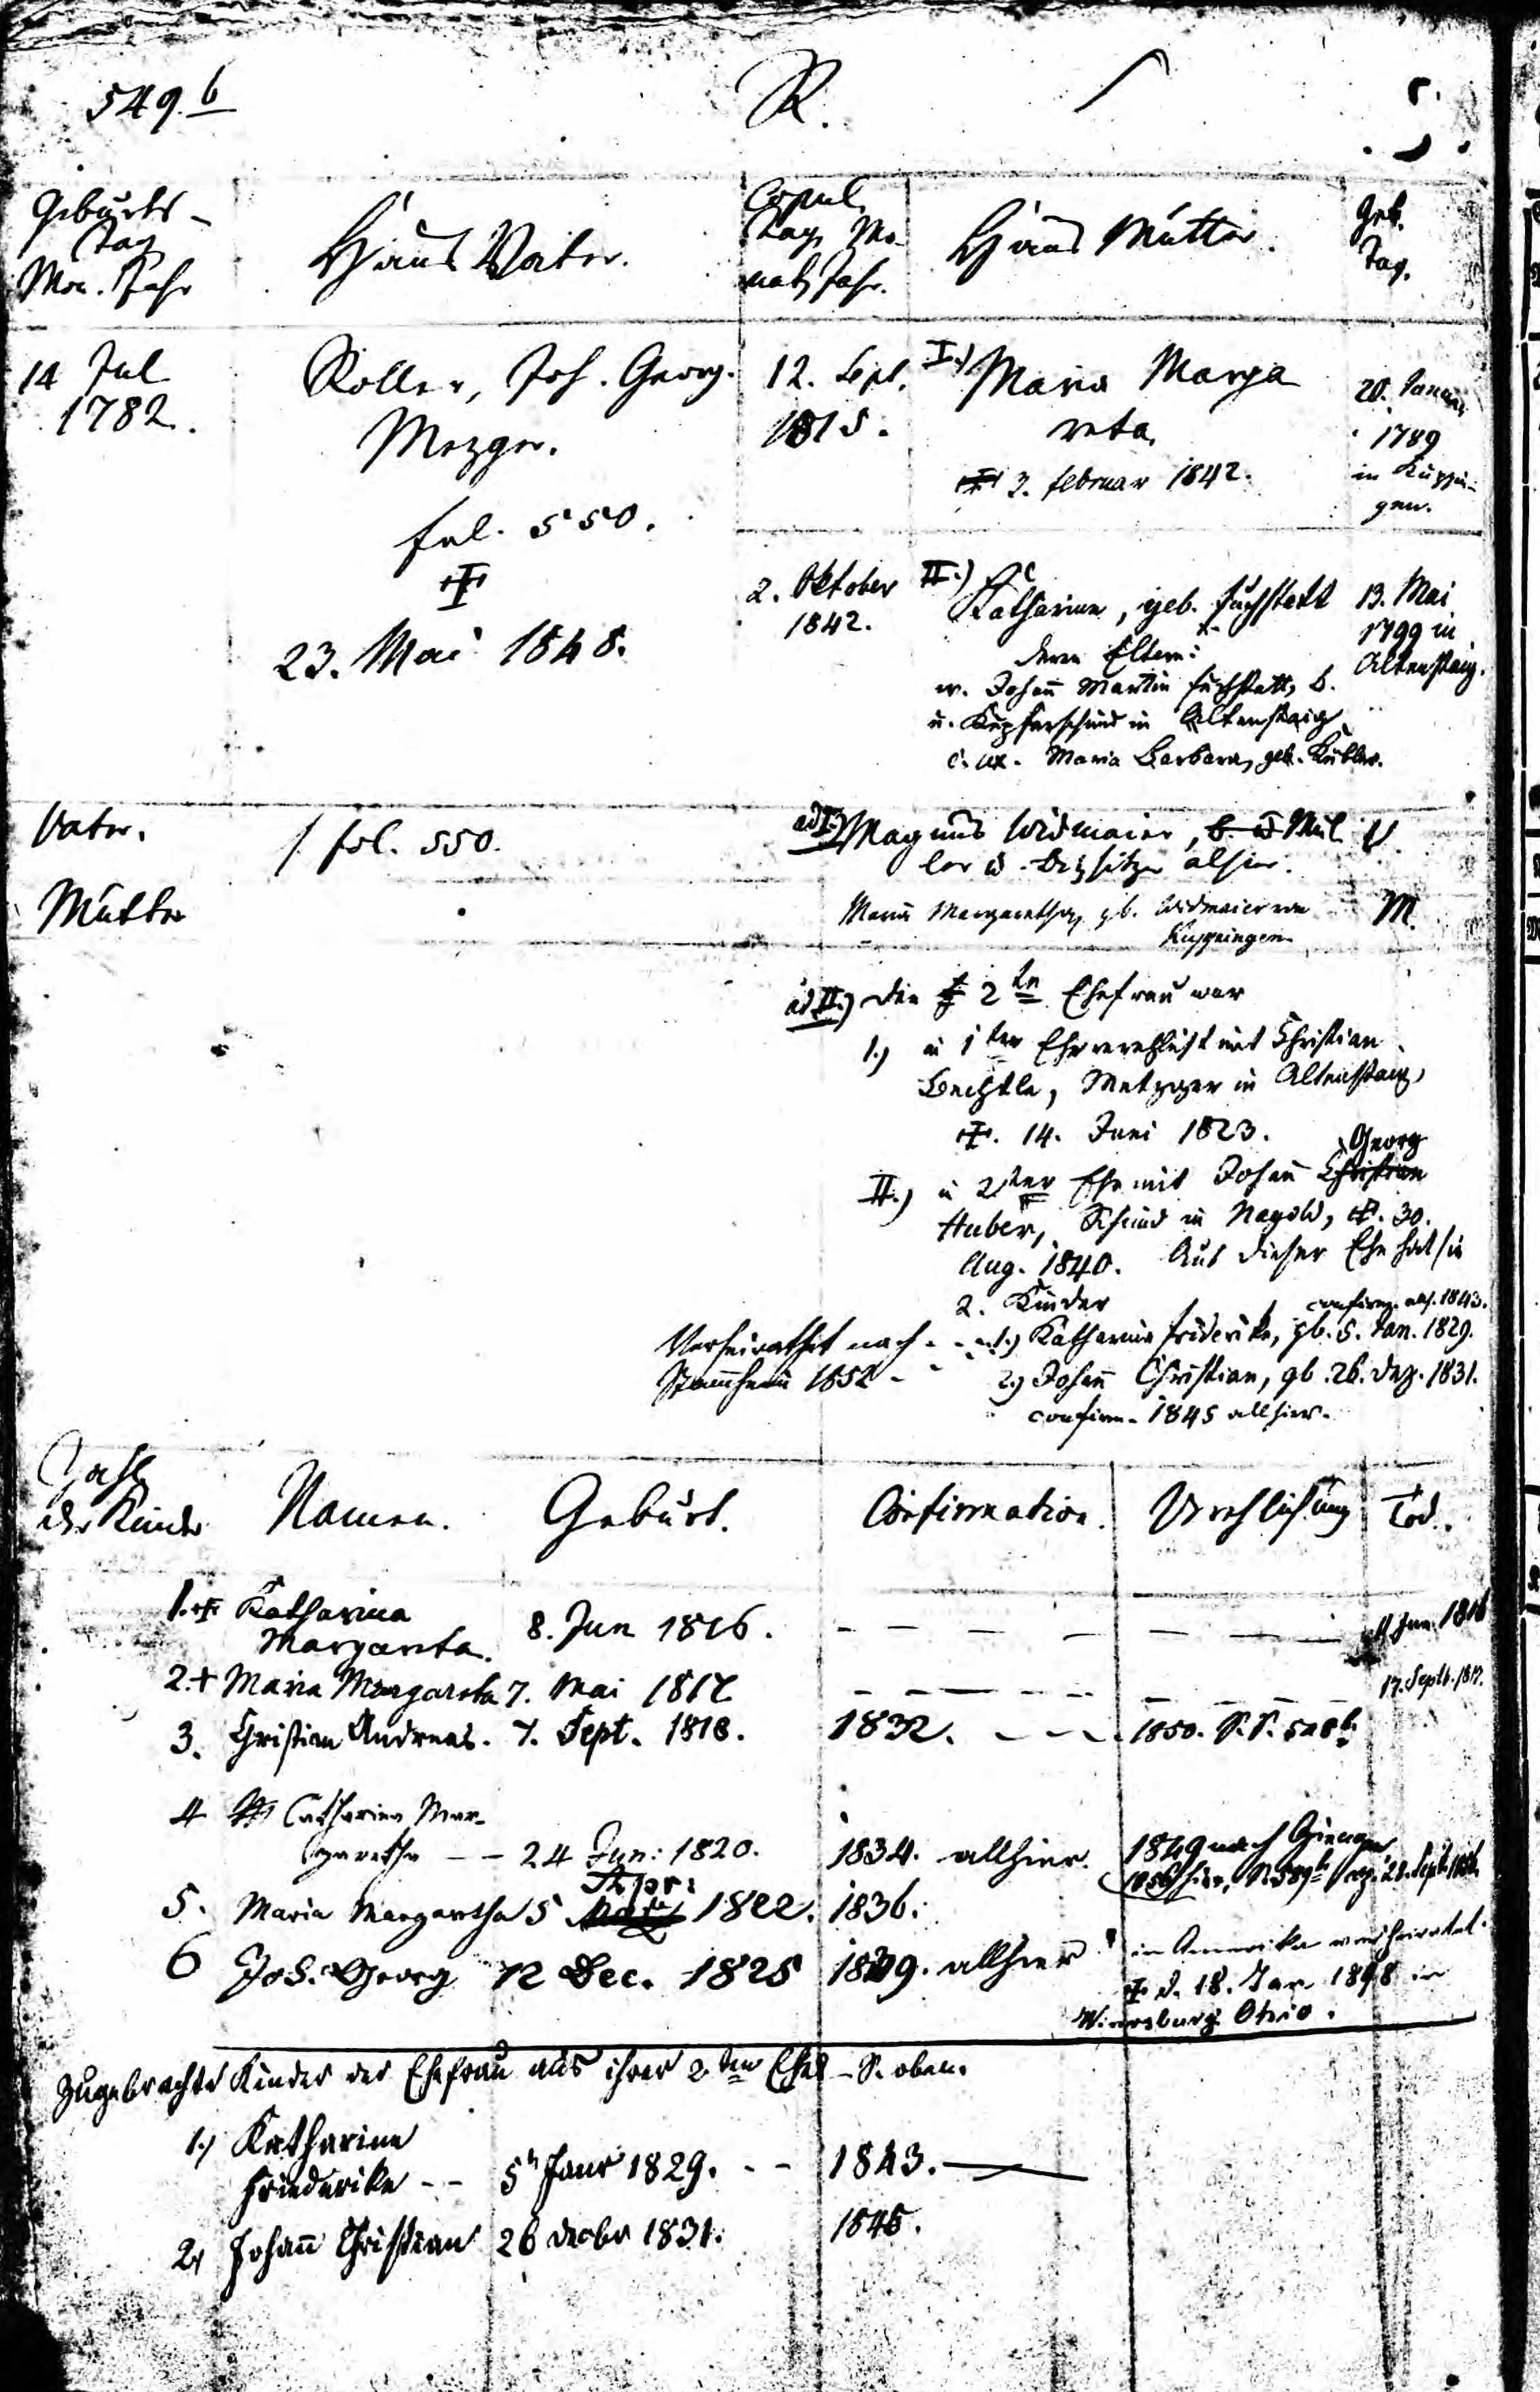 549.b R.
Geburts-
Tag
Mon. Jahr
Haus Vater.
Copul.
Tag, Mo-
nat, Jahr.
Haus Mutter.
Geb.
Tag.
14 Jul
1782.
Roller, Joh. Georg.
Mezger.
fol. 550.
23. Mai 1848.
12. Sept.
1815.
I.) Maria Marga
reta,
3. Februar 1842.
20. Januar
1789
in Kuppin-
gen.
2. Oktober
1842.
II.) Katharina, geb. Fuchstatt
deren Eltern:
w. Johann Martin Fuchstatt, B.
u. Kupferschmid in Altenstaig
c. ux. Maria Barbara, geb. Kübler.
13. Mai
1799 in
Altenstaig.
Vater. / fol. 550.
ad I.) Magnus Widmaier, B. u. Mül V.
ler u. Beysitzer alhier.
Mutter
Maria Margaretha, gb. Widmaier von M.
Kuppingen.
ad II.) Die 2te Ehefrau war
1.) in 1ter Ehe verehlicht mit Christian
Bechtle, Metzger in Altenstaig,
14. Juni 1823.
Georg
II.) in 2ter Ehe mit Johann Christian
Huber, Schmid in Nagold, 30.
Aug. 1840. Aus dieser Ehe hat sie
2. Kinder
confirm. alh. 1843.
Verheirathet nach - - 1.) Katharina Friderike, gb. 5. Jan. 1829.
Stammheim 1852 - 2.) Johann Christian, gb. 26. Dez. 1831.
confirm. 1845 allhier.
Zahl
der Kinder Namen. Geburt. Confirmation. Verehlichung Tod.
1. Katharina
Margareta. 8. Jun 1816. 11 Jun. 1816
2. + Maria Margareta 7. Mai 1817. 17. Septb. 1817.
3. Christian Andreas. 7. Sept. 1818. 1832. 1850.
4 Catharina Mar-
garetha - - 24 Jun: 1820. 1834. allhier. 1849 nach
5. Maria Margaretha 5 1822. 1836.
6 Joh. Georg 12 Dec. 1825 1839. allhier in Amerika verheiratet.
d. 18. Jan. 1898 in
Winesburg Ohio.
Zugebrachte Kinder der Ehefrau aus ihrer 2ten Ehe - S. oben.
1.) Katharina
Friederike - - 5 Janr 1829. - - 1843.
2.) Johann Christian 26 Decbr 1831. 1845.